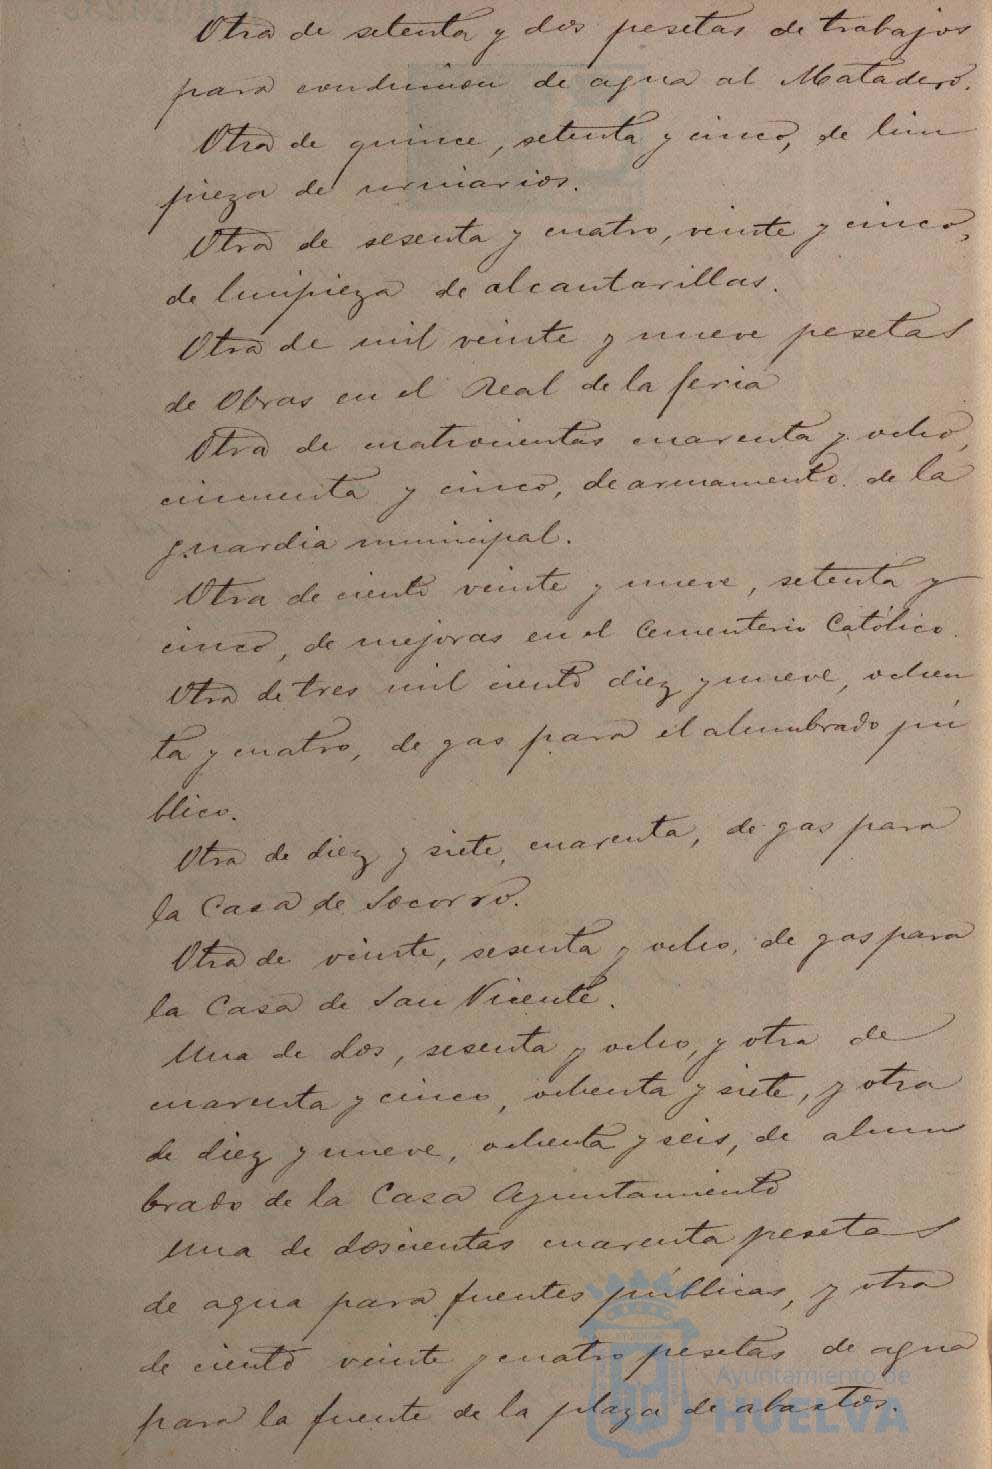 Otra de setenta y dos pesetas de trabajos
para conduccion de agua al Matadero.
Otra de quince, setenta y cinco, de lim
pieza de urinarios.
Otra de sesenta y cuatro, veinte y cinco,
de limpieza de alcantarillas.
Otra de mil veinte y nueve pesetas
de Obras en el Real de la feria
Otra de cuatrocientas cuarenta y ocho,
cincuenta y cinco, de armamento de la
guardia municipal.
Otra de ciento veinte y nueve, setenta y
cinco, de mejoras en el Cementerio Católico.
Otra de tres mil ciento diez y nueve, ochen
ta y cuatro, de gas para el alumbrado pú
blico.
Otra de diez y siete, cuarenta, de gas para
la Casa de Socorro.
Otra de veinte, sesenta y ocho, de gas para
la Casa de San Vicente.
Una de dos, sesenta y ocho, y otra de
cuarenta y cinco, ochenta y siete, y otra
de diez y nueve, ochenta y seis, de alum
brado de la Casa Ayuntamiento
Una de doscientas cuarenta pesetas
de agua para fuentes públicas, y otra
de ciento veinte y cuatro pesetas de agua
para la fuente de la plaza de abastos.
Ayuntamiento de
HUELVA